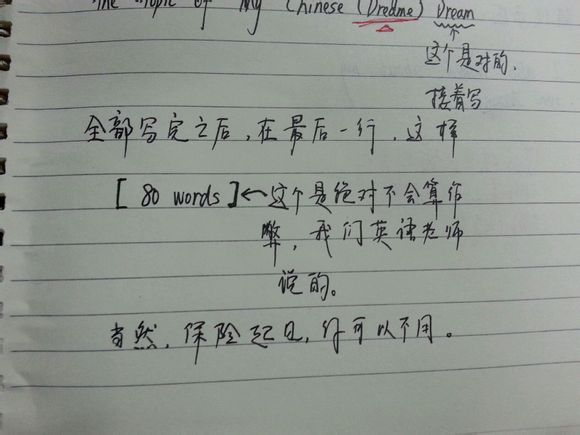 The Topic of My Chinese (Dredme) Dream
这个是对的.
接着写
全部写完之后,在最后一行,这样
[ 80 words ]←这个是绝对不会算作
弊,我们英语老师
说的。
当然,保险起见,你可以不用。